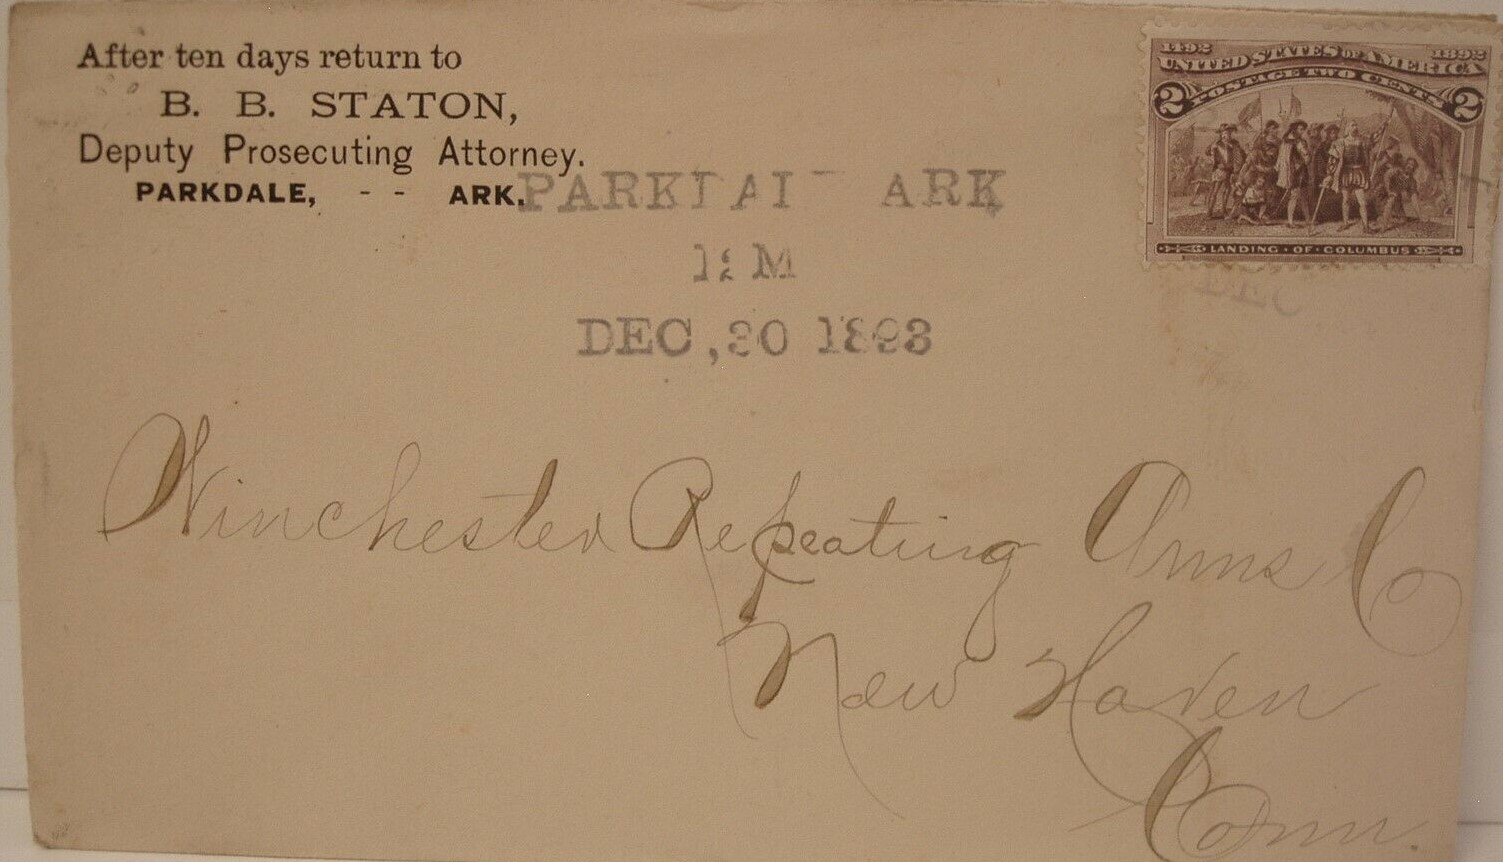 After ten days return to
B. B. STATON,
Deputy Prosecuting Attorney.
PARKDALE, - - ARK.
1492 1892
UNITED STATES OF AMERICA
POSTAGE TWO CENTS
2 2
LANDING · OF · COLUMBUS
ARK
12 M
DEC, 30 1893
DEC
Winchester Repeating Arms Co
New Haven
Conn.